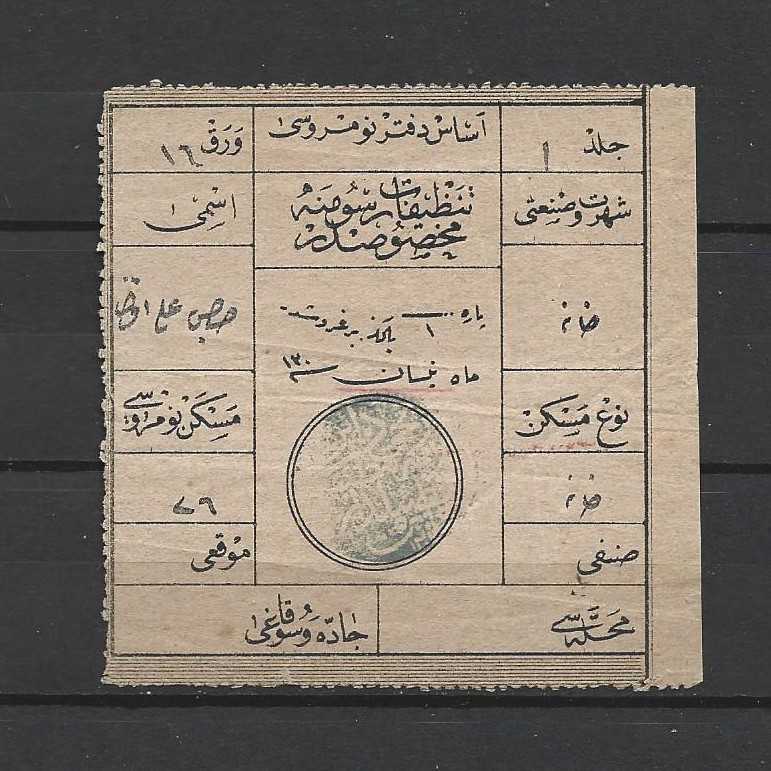 اساس دفتر نومروسی
جلد ١
ورق ١٦
تنظیفات رسومنه
مخصوصدر
شهرت و صنعتی
اسمی
خانه
علی
پاره ١ یالکز بر غروشدر
ماه نیسان
نوع مسكن
مسكن نومروسی
خانه
٧٩
صنفی
موقعی
محله سی
جاده و سوقاغی